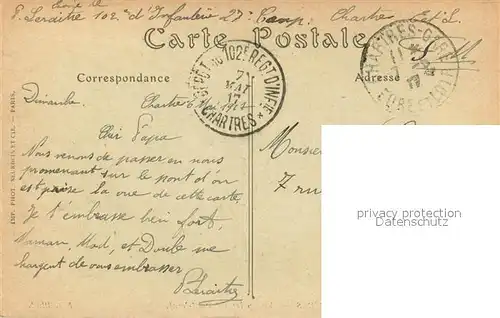 P. Leraitre 102e d'Infanterie 27e Comp. Chartres E. et L.
Carte Postale
S. M
DÉPOT DU 102E REGT D'INFIE
7
MAI
17
CHARTRES
CHARTRES-GARE
EURE-ET-LOIR
Correspondance
Adresse
Dimanche
Chartres 6 Mai
Cher Papa
Nous venons de passer en nous
promenant sur le pont d'où
est prise la vue de cette carte
Je t'embrasse bien fort,
Maman, Mad, et me
chargent de vous embrasser
PLeraitre
Monsieur
7 rue
IMP. PHOT. NEURDEIN ET CIE. — PARIS.
property rights reserved
Datenschutz - Wasserzeichen